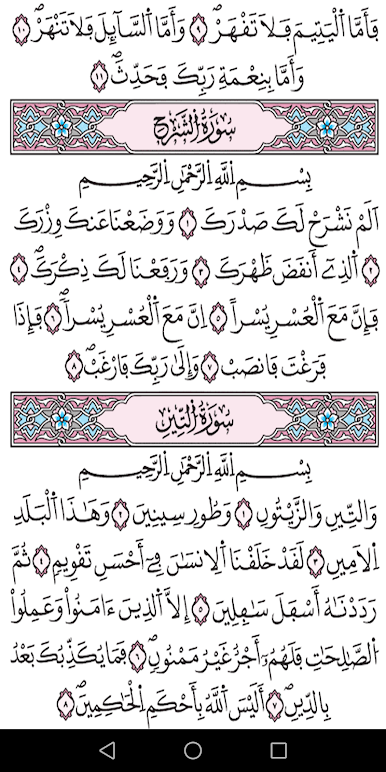 فَأَمَّا اَ۬لْيَتِيمَ فَلَا تَقْهَرْۖ ٩ وَأَمَّا اَ۬لسَّآئِلَ فَلَا تَنْهَرْۖ ١٠
وَأَمَّا بِنِعْمَةِ رَبِّكَ فَحَدِّثْۖ ١١
سُورَةُ الشَّرْحِ
بِسْمِ اِ۬للَّهِ اِ۬لرَّحْمَٰنِ اِ۬لرَّحِيمِ
أَلَمْ نَشْرَحْ لَكَ صَدْرَكَ ١ وَوَضَعْنَا عَنكَ وِزْرَكَ
٢ اَ۬لذِےٓ أَنقَضَ ظَهْرَكَ ٣ وَرَفَعْنَا لَكَ ذِكْرَكَۖ ٤
فَإِنَّ مَعَ اَ۬لْعُسْرِ يُسْراً ٥ اِنَّ مَعَ اَ۬لْعُسْرِ يُسْراٗۖ ٦ فَإِذَا
فَرَغْتَ فَانصَبْ ٧ وَإِلَىٰ رَبِّكَ فَارْغَبۖ ٨
سُورَةُ التِّينِ
بِسْمِ اِ۬للَّهِ اِ۬لرَّحْمَٰنِ اِ۬لرَّحِيمِ
وَالتِّينِ وَالزَّيْتُونِ ١ وَطُورِ سِينِينَ ٢ وَهَٰذَا اَ۬لْبَلَدِ
اِ۬لَامِينِ ٣ لَقَدْ خَلَقْنَا اَ۬لِانسَٰنَ فِےٓ أَحْسَنِ تَقْوِيمٖ ٤ ثُمَّ
رَدَدْنَٰهُ أَسْفَلَ سَٰفِلِينَ ٥ إِلَّا اَ۬لذِينَ ءَامَنُواْ وَعَمِلُواْ
اُ۬لصَّٰلِحَٰتِ فَلَهُمُۥٓ أَجْرٌ غَيْرُ مَمْنُونٖۖ ٦ فَمَا يُكَذِّبُكَ بَعْدُ
بِالدِّينِۖ ٧ أَلَيْسَ اَ۬للَّهُ بِأَحْكَمِ اِ۬لْحَٰكِمِينَۖ ٨